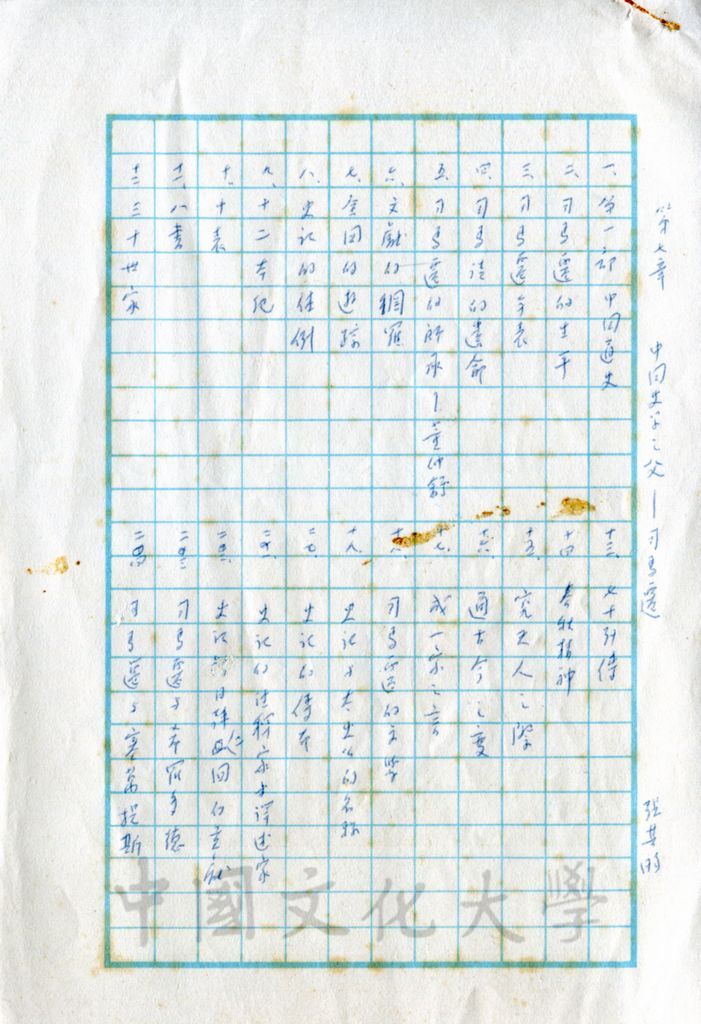 第七章 中国史学之父—司馬遷
張其昀
一、第一部中国通史
二、司馬遷的生平
三、司馬遷年表
四、司馬談的遺命
五、司馬遷的師承—董仲舒
六、文獻的網羅
七、全国的遊踪
八、史記的体例
九、十二本紀
十、十表
十一、八書
十二、三十世家
十三、七十列傳
十四、春秋精神
十五、究天人之際
十六、通古今之變
十七、成一家之言
十八、司馬遷的文學
十九、史記与太史公的名称
二十、史記的傳本
二十一、史記的注释家与评述家
二十二、史記
二十三、司馬遷与希羅多德
二十四、司馬遷与塞萬提斯
中國文化大學